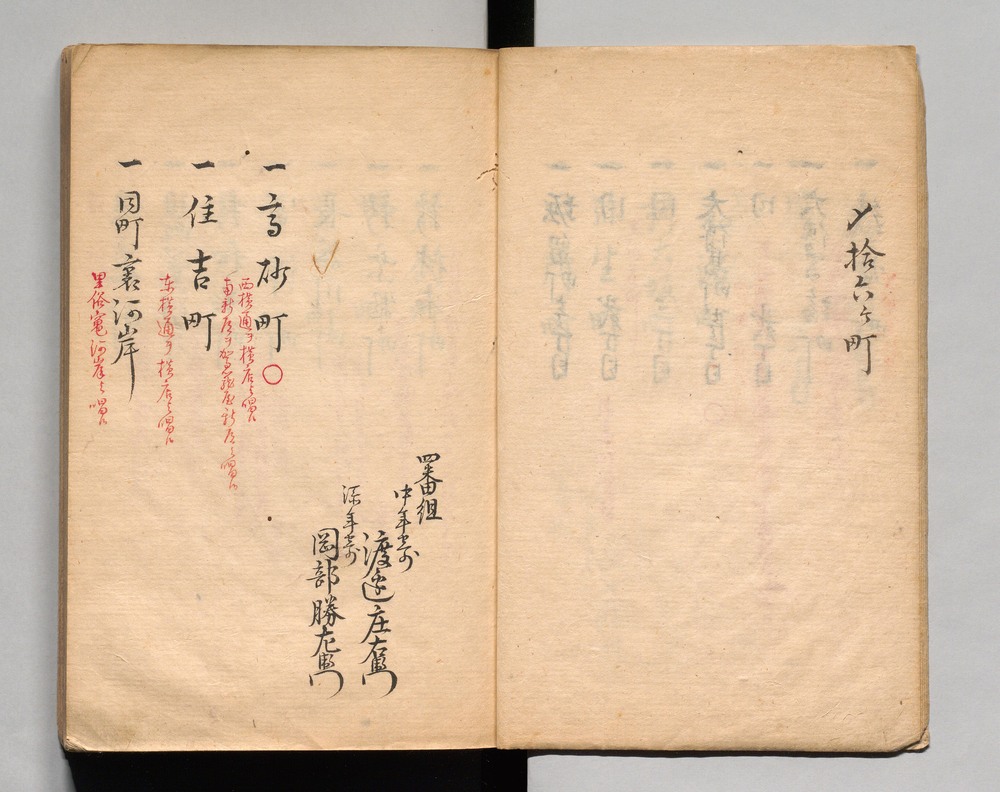 〆拾六ケ町
四番組
中年寄
渡辺庄右衛門
深年寄
岡部勝左衛門
一高砂町〇
西横通ヲ横店と唱候
南新道ヲ
屋新道と唱候
一住吉町
東横通ヲ横店と唱候
一同町裏河岸
里俗竃河岸と唱候